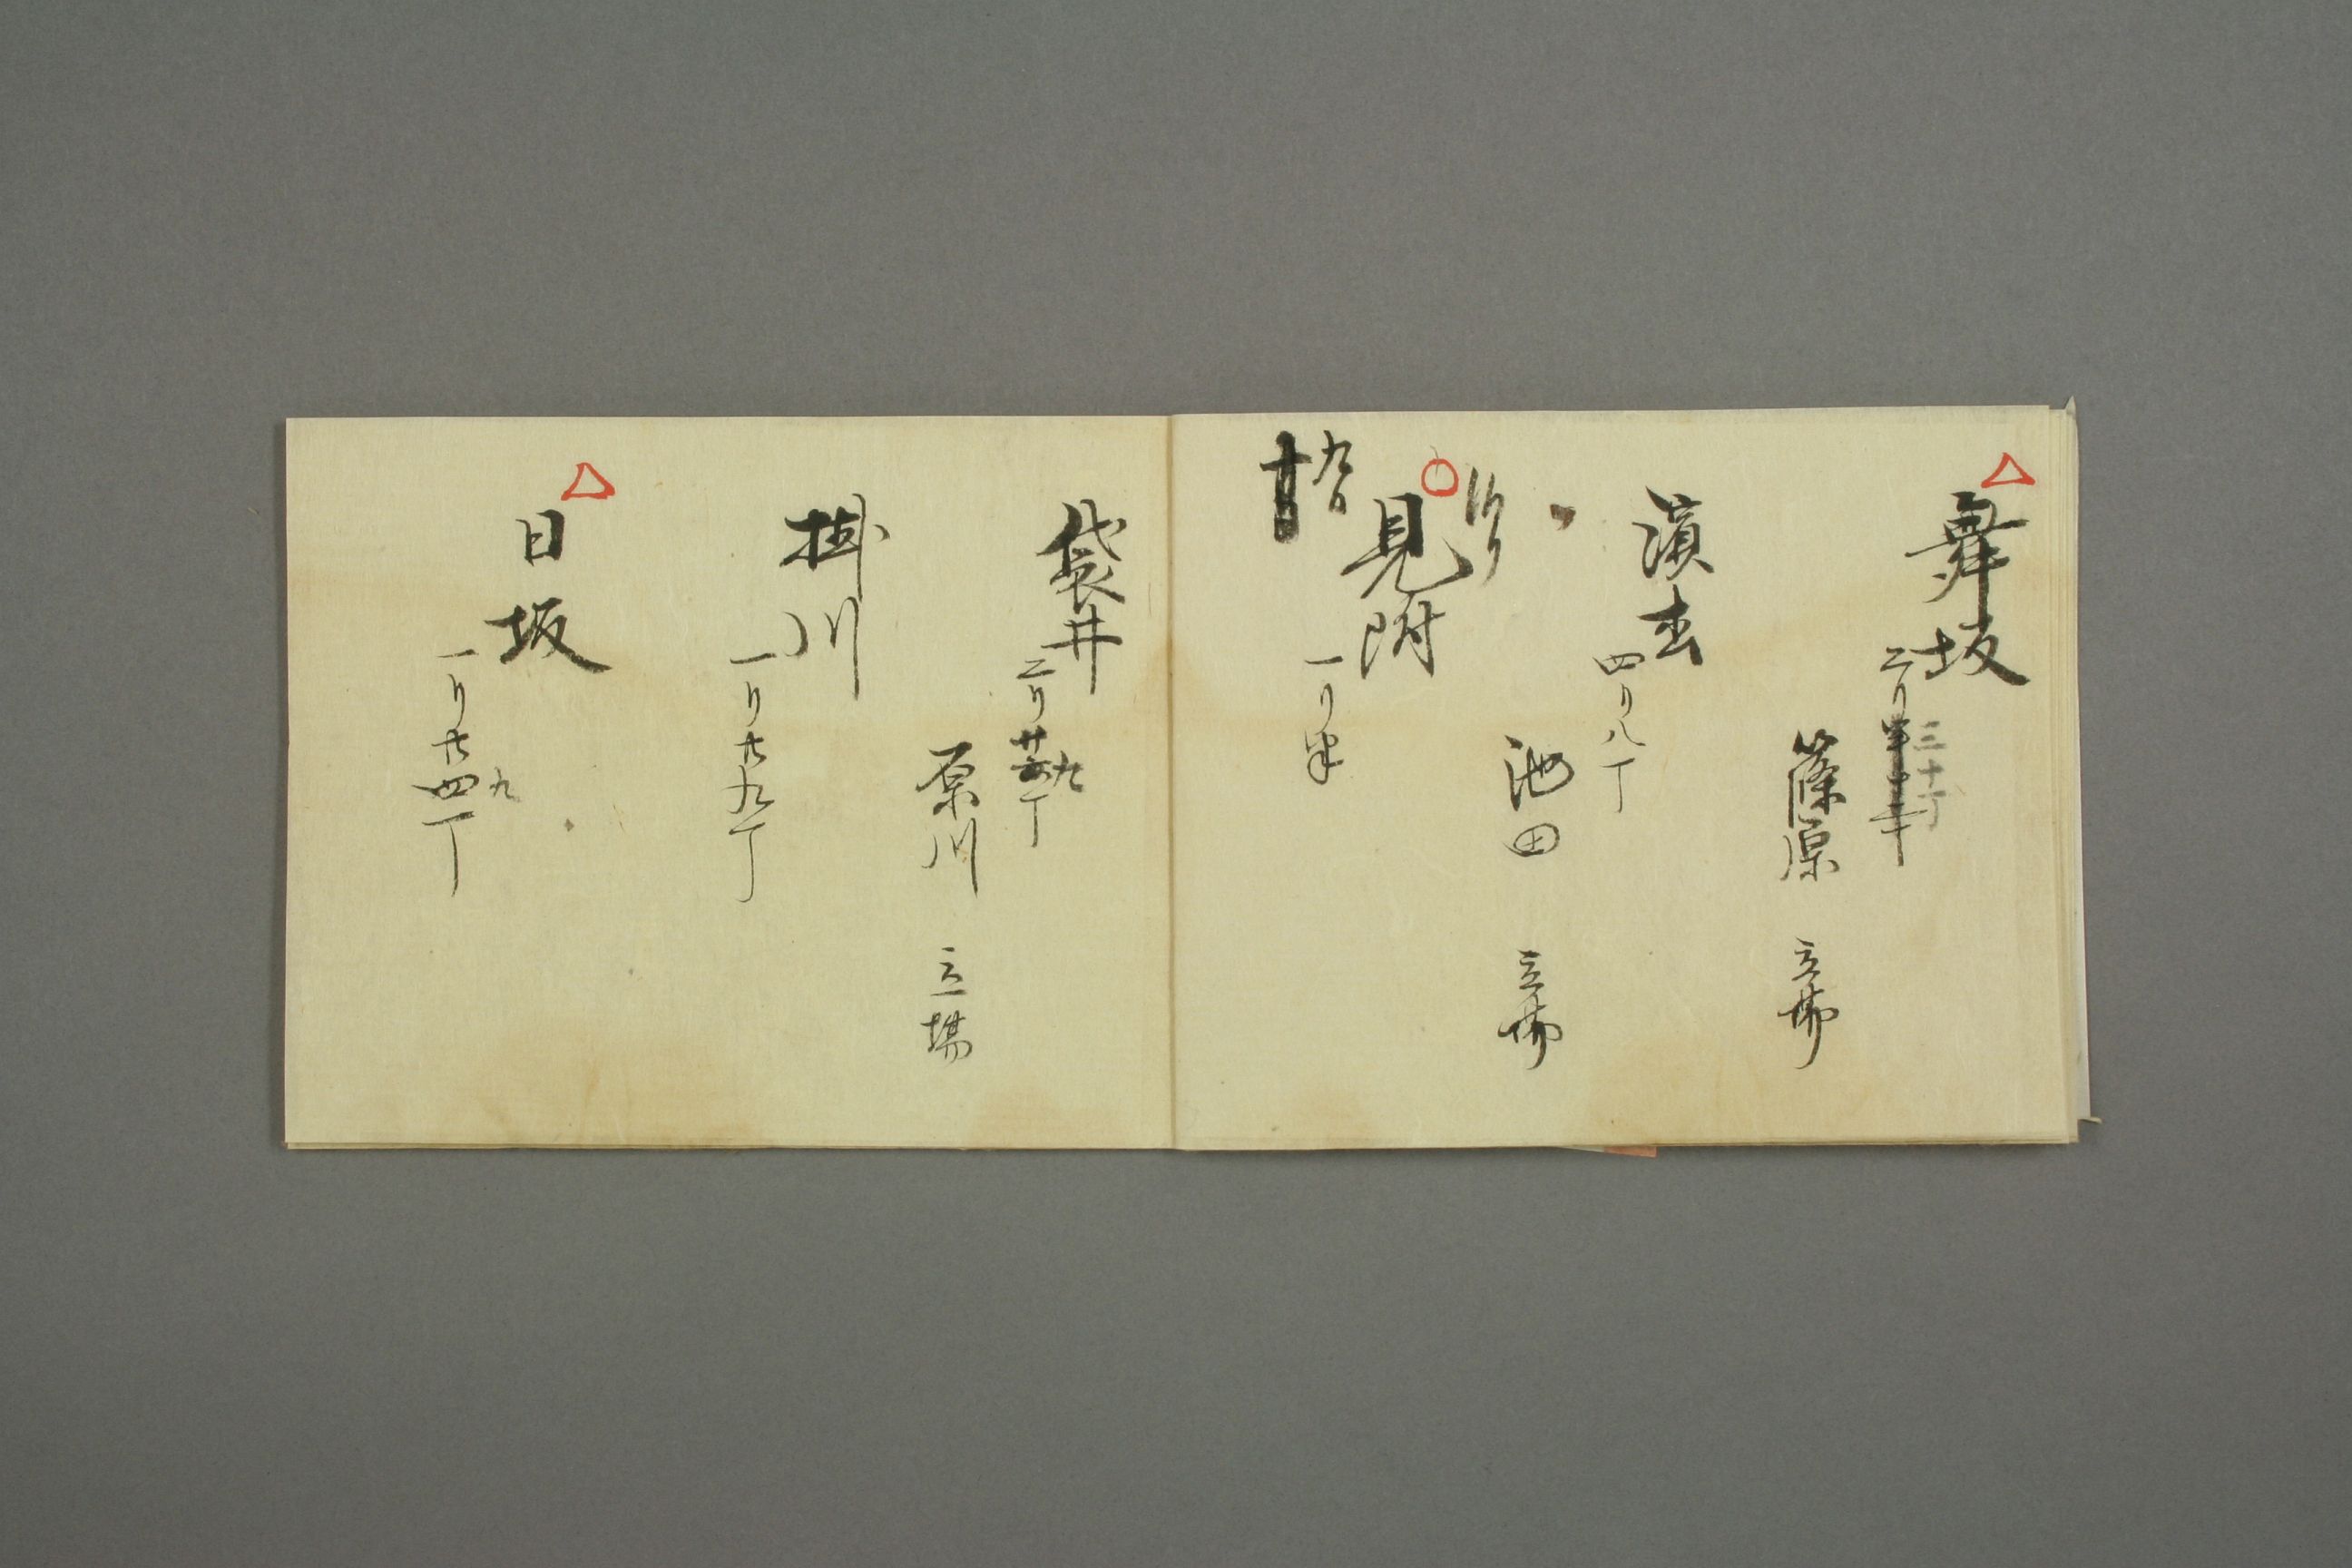 舞坂
二リ
三十丁
篠原 立場
濱松
四リ八丁
池田 立場
見附
九日
一リ半
袋井
二リ
九
丁
原川 立場
掛川
一リ廿九丁
日坂
一リ廿四丁
九